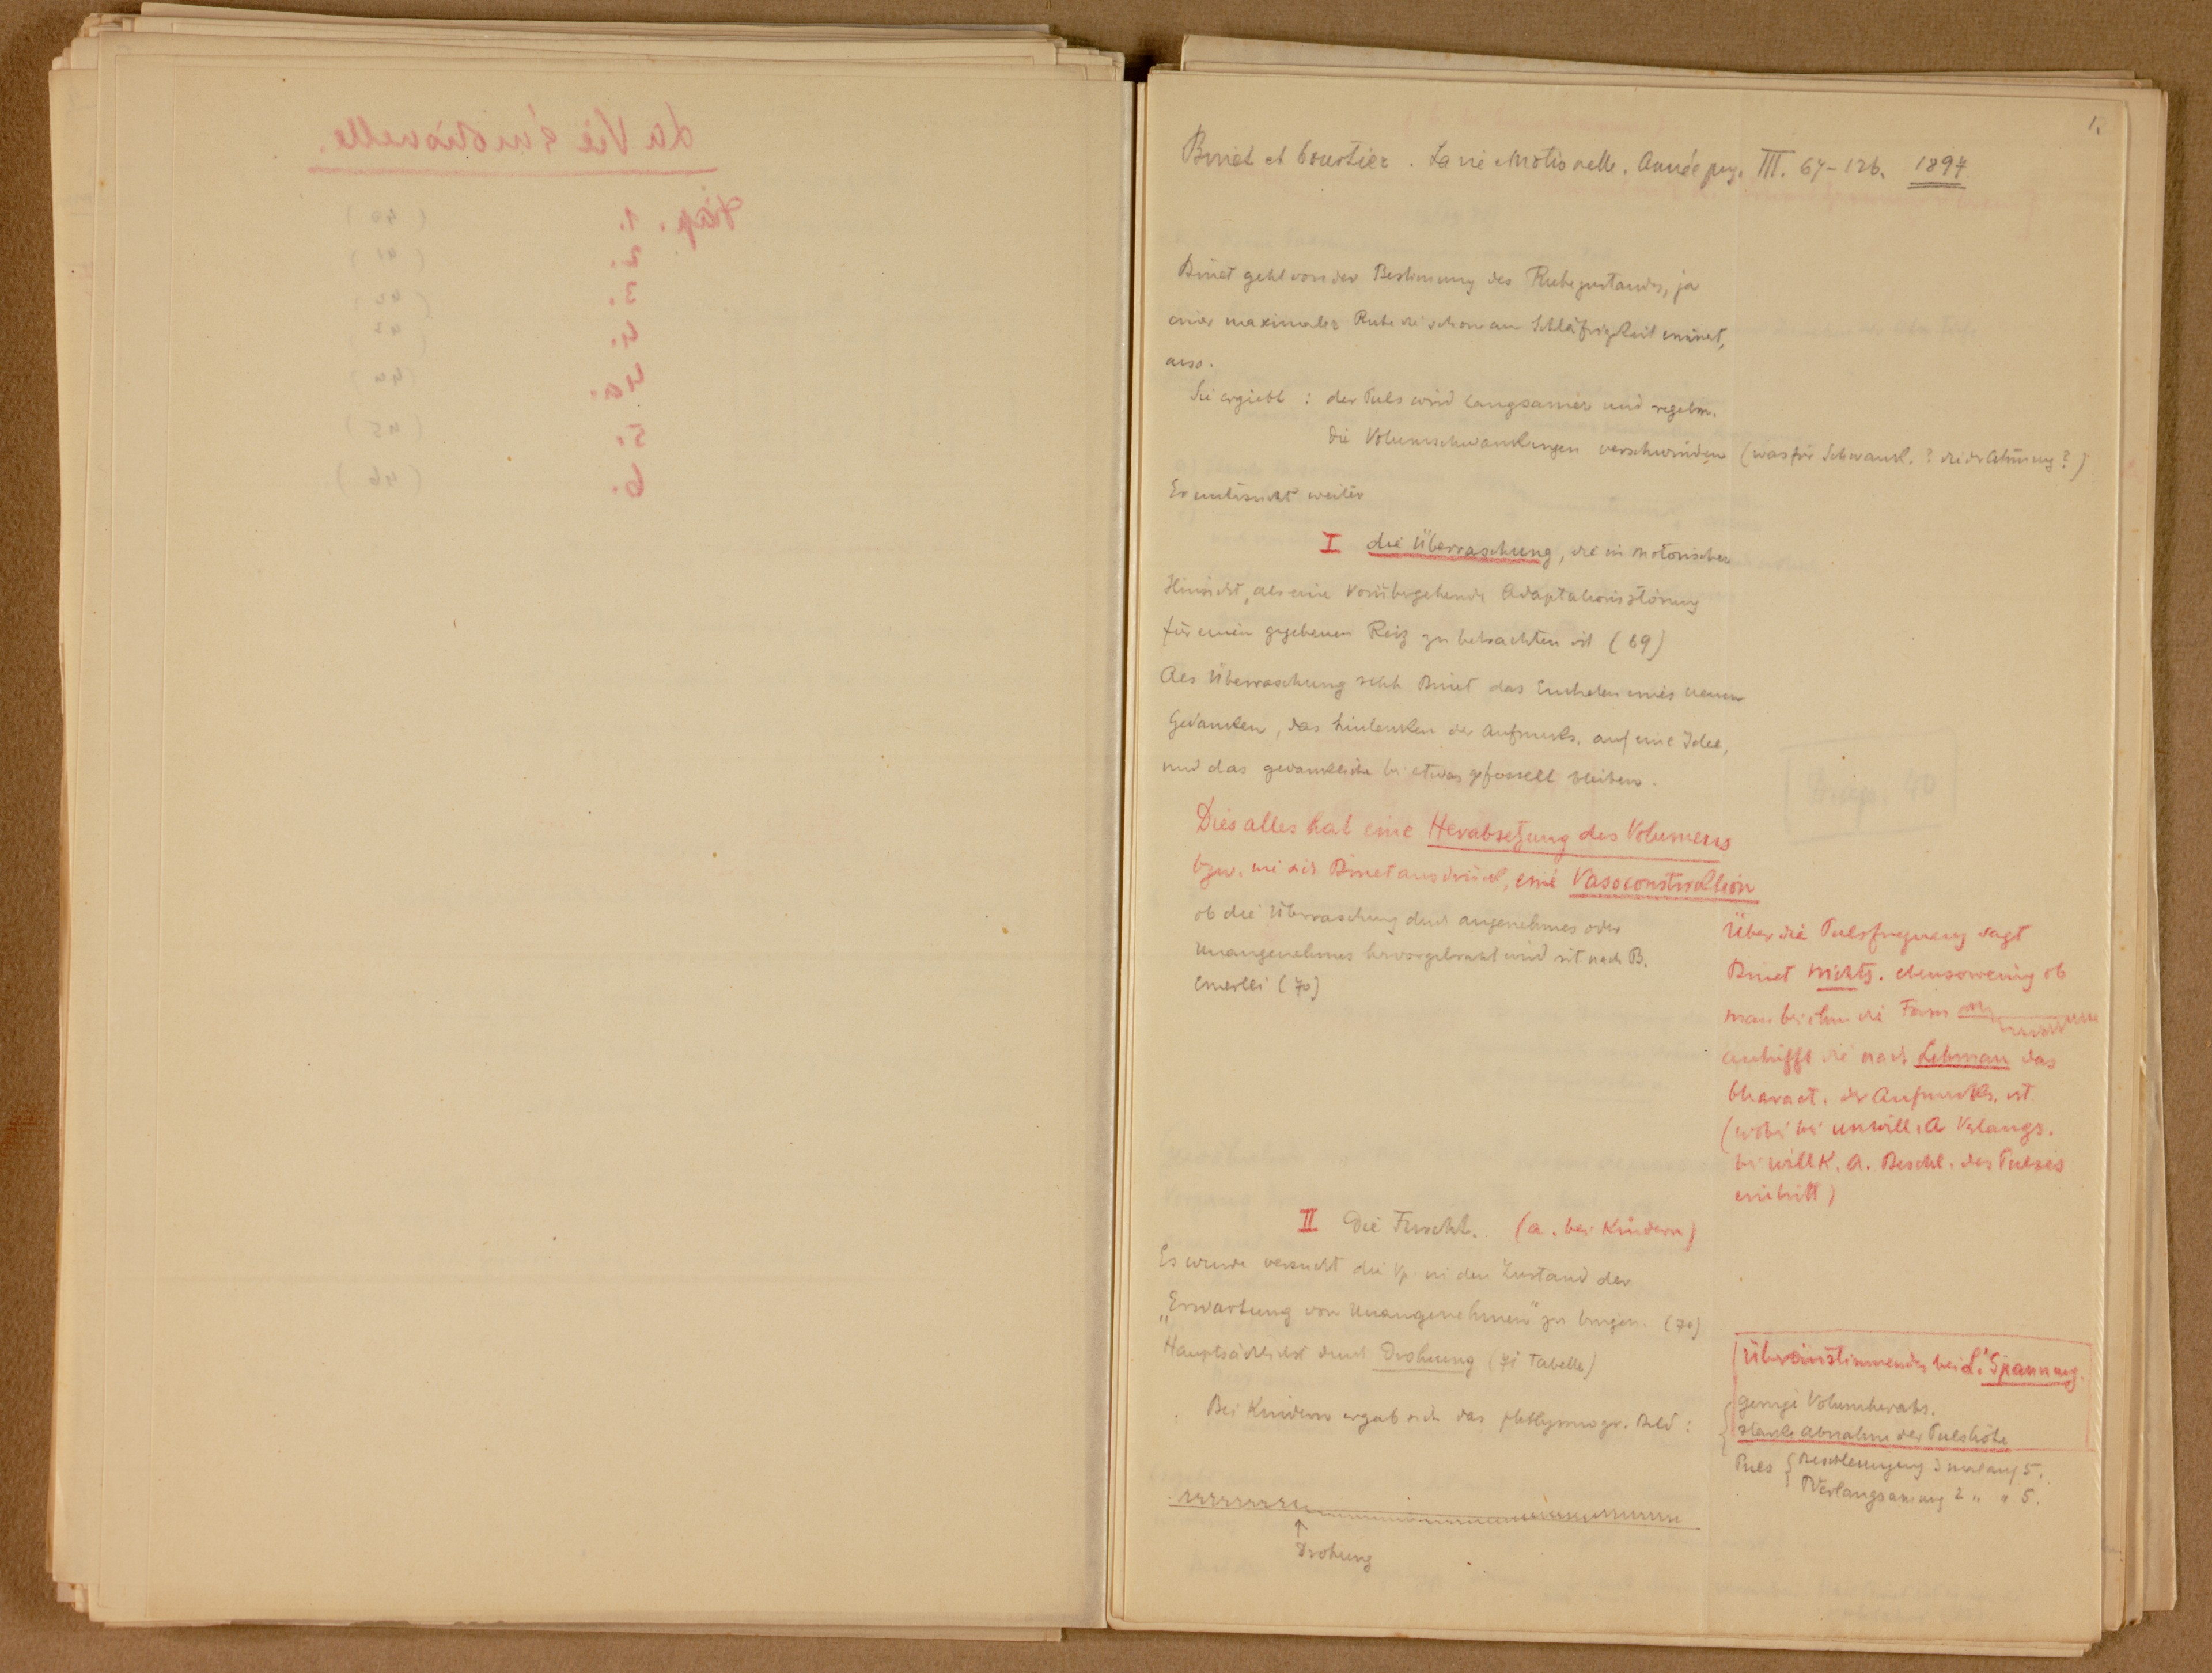 La Vie émotionelle.
Kap. 1. (40)
2. (41)
3. (42)
4. (43)
4a. (44)
5. (45)
6. (46)
1.
Binet et Courtier. La vie émotionelle. Année psy. III. 67-126. 1897
Binet geht von der Bestimmung des Ruhezustandes, ja
einer maximalen Ruhe die schon an Schläfrigkeit erinnert,
aus.
Sie ergiebt: der Puls wird langsamer und regelm.
die Volumschwankungen verschwinden (was für Schwank.? die der Atmung?)
Er untersucht weiter
I die Überraschung, die in motorischer
Hinsicht, als eine vorübergehende Adaptationsstörung
für einen gegebenen Reiz zu betrachten ist (69)
Als Überraschung sieht Binet das Eintreten eines neuen
Gedanken, das hinlenken der Aufmerks. auf eine Idee,
und das gedankliche bei etwas gefesselt bleiben.
Dies alles hat eine Herabsetzung des Volumens
bzw. wie sich Binet ausdrückt, eine Vasoconstriktion
ob die Überraschung durch angenehmes oder
unangenehmes hervorgebracht wird ist nach B.
einerlei (70)
Über die Pulsfrequenz sagt
Binet nichts. ebensowenig ob
man bei ihm die Form
antrifft die nach Lehman das
Charact. der Aufmerks. ist
(wobei bei unwill. A Verlangs.
bei willk. A. Beschl. des Pulses
eintritt)
II Die Furcht. (a. bei Kindern)
Es wurde versucht die Vp. in den Zustand der
„Erwartung von Unangenehmen" zu bringen. (70)
Hauptsächlichst durch Drohung (71 Tabelle)
Bei Kindern ergab sich das plethysmogr. Bild:
Übereinstimmendes bei L. Spannung.
geringe Volumherabs.
starke Abnahme der Pulshöhe
Puls { Beschleunigung 3 mal auf 5.
Verlangsamung 2 " " 5.
↑
Drohung